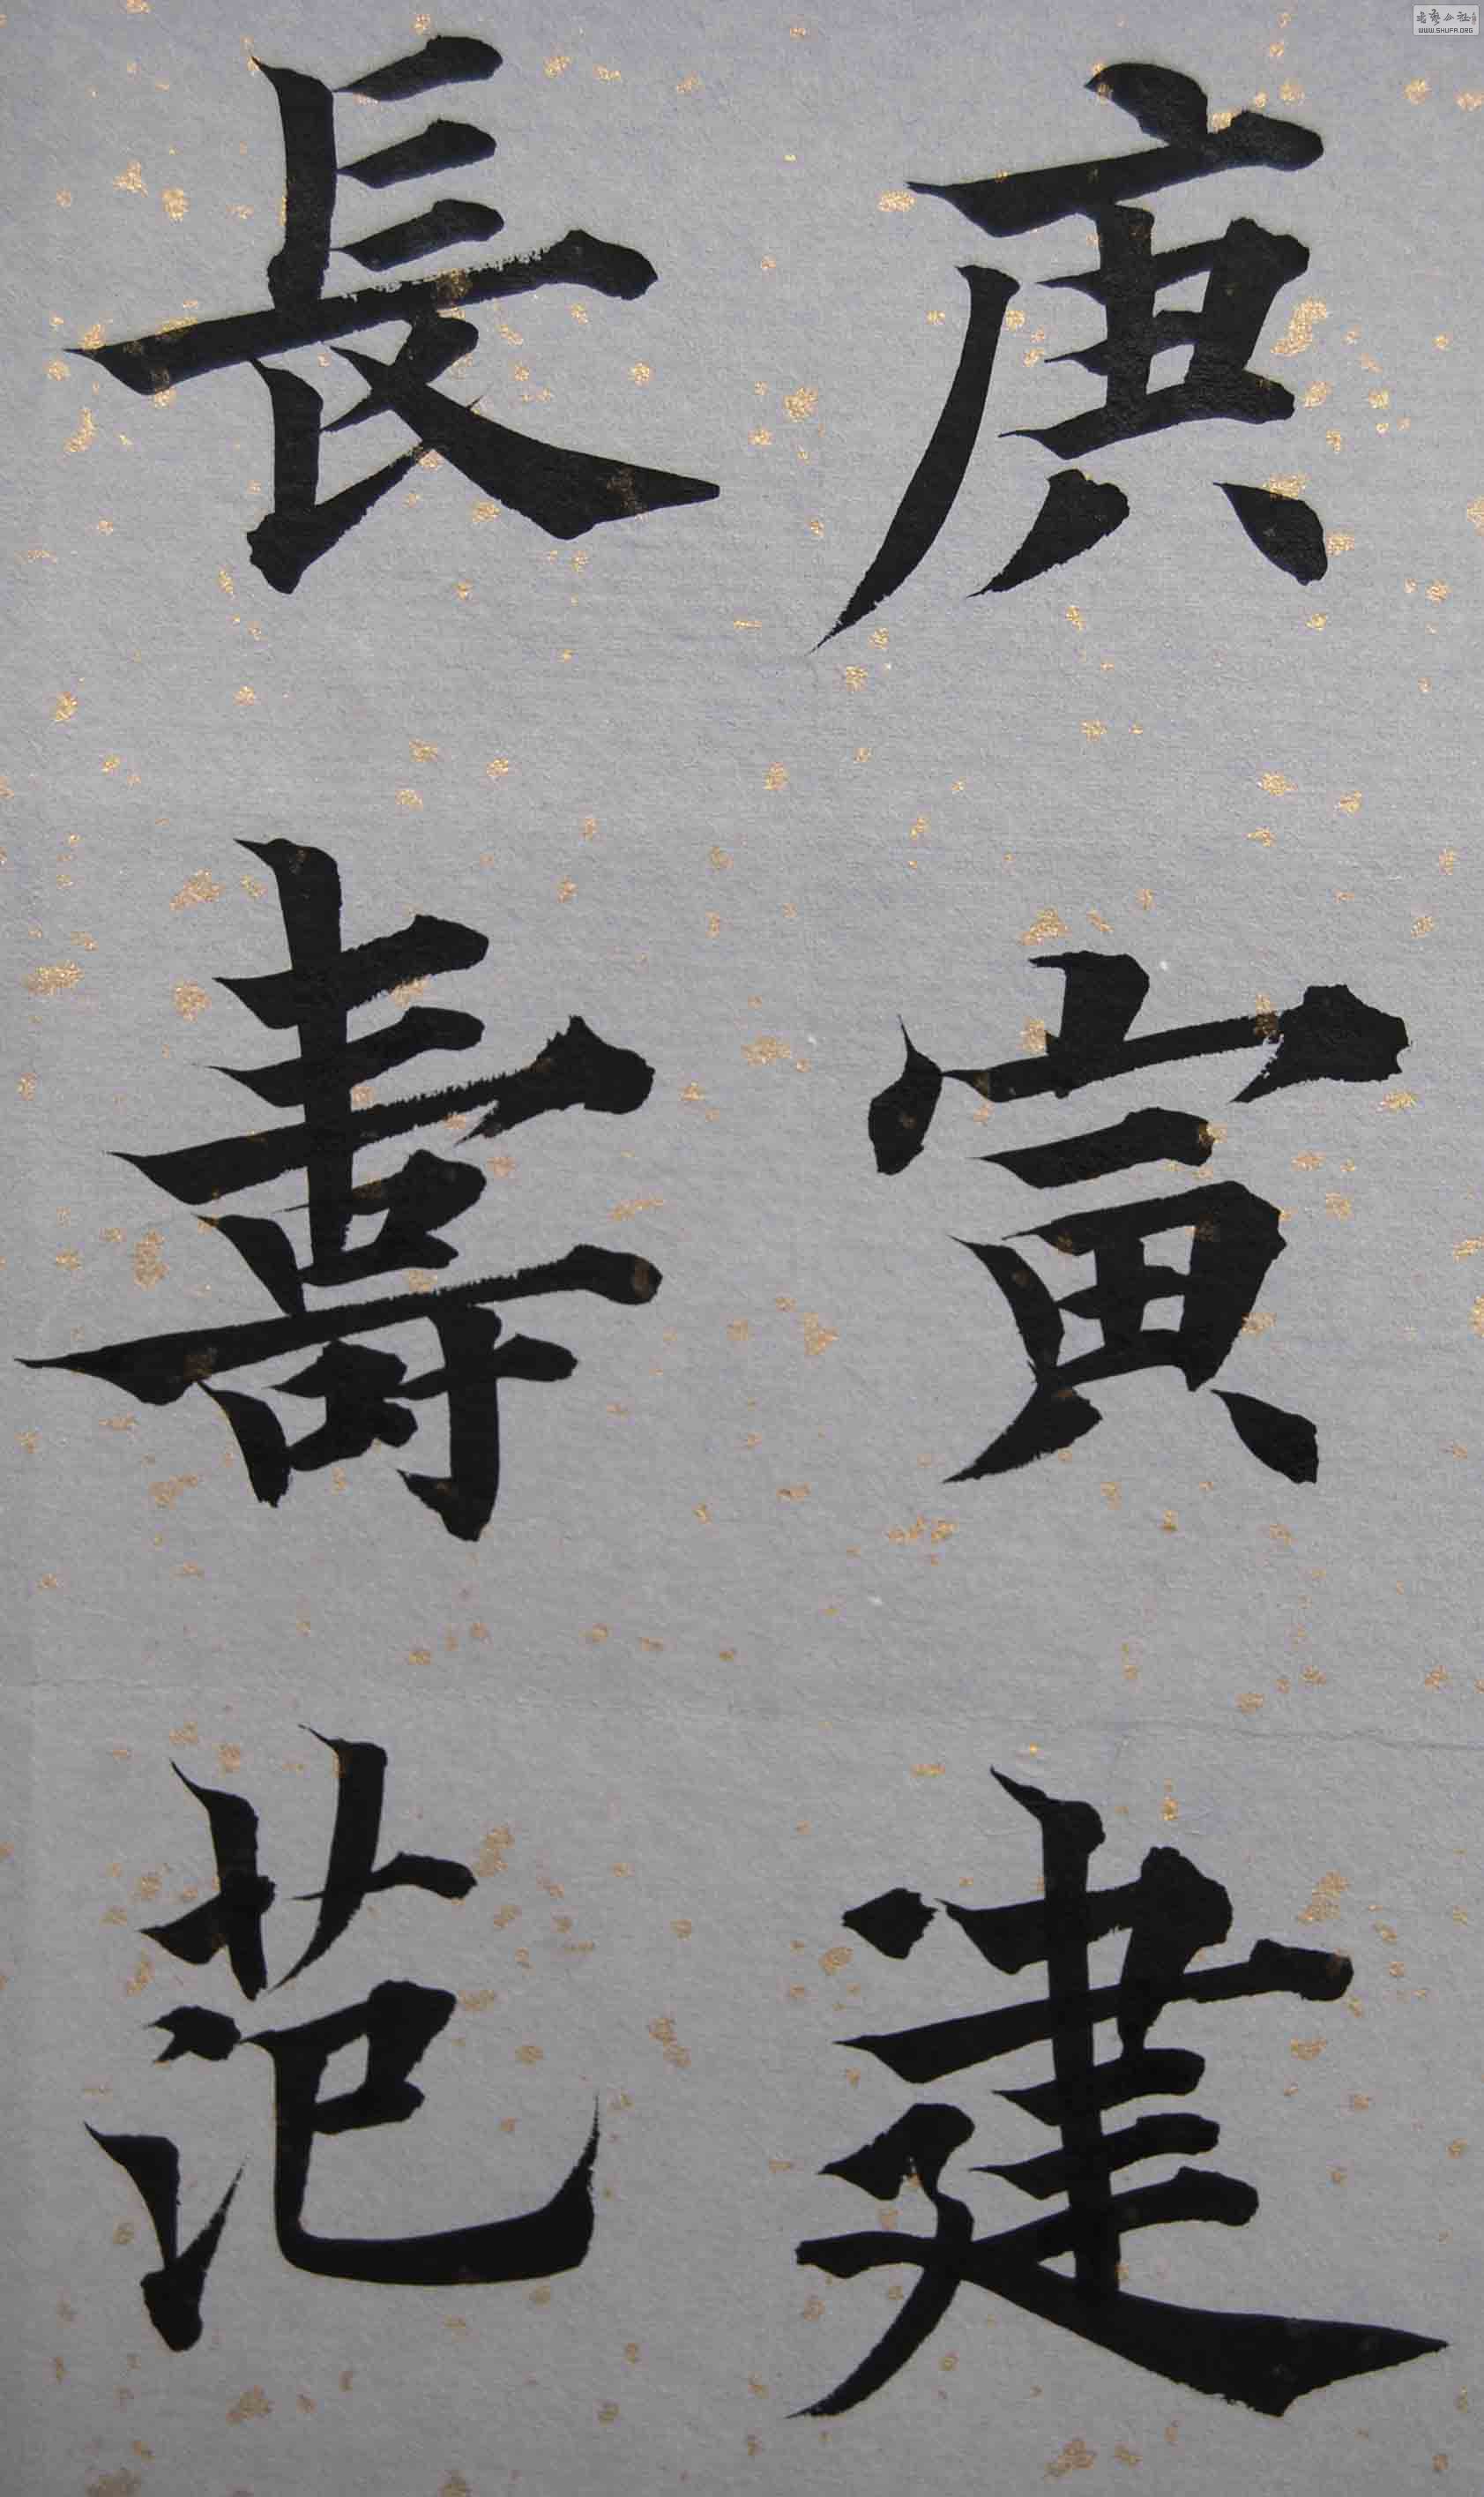 庚寅建
長壽范
WWW.SHUFA.ORG